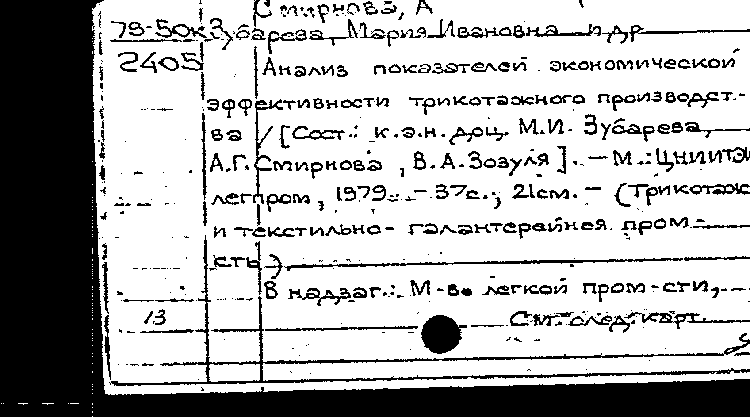 Смирнова, А
79-50к Зубарева, Мария Ивановна и др
2405 Анализ показателей экономической
эффективности трикотажного производст-
ва / [Сост.: к.э.н. доц. М.И. Зубарева,
А.Г. Смирнова, В.А. Зозуля]. — М.: ЦНИИТЭ
легпром, 1979. — 37с.; 21см. — (Трикотаж
и текстильно-галантерейная пром-
сть).
В надзаг.: М-во легкой пром-сти,
13 См. след. карт.